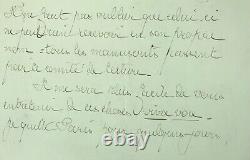 Il ne faut pas oublier que celui-ci
ne peut rien recevoir en son propre
nom - tous les manuscrits passent
par le comité de lecture.
Il me sera tout facile de vous
entretenir de ces choses de vive voix
je quitte Paris pour quelques jours